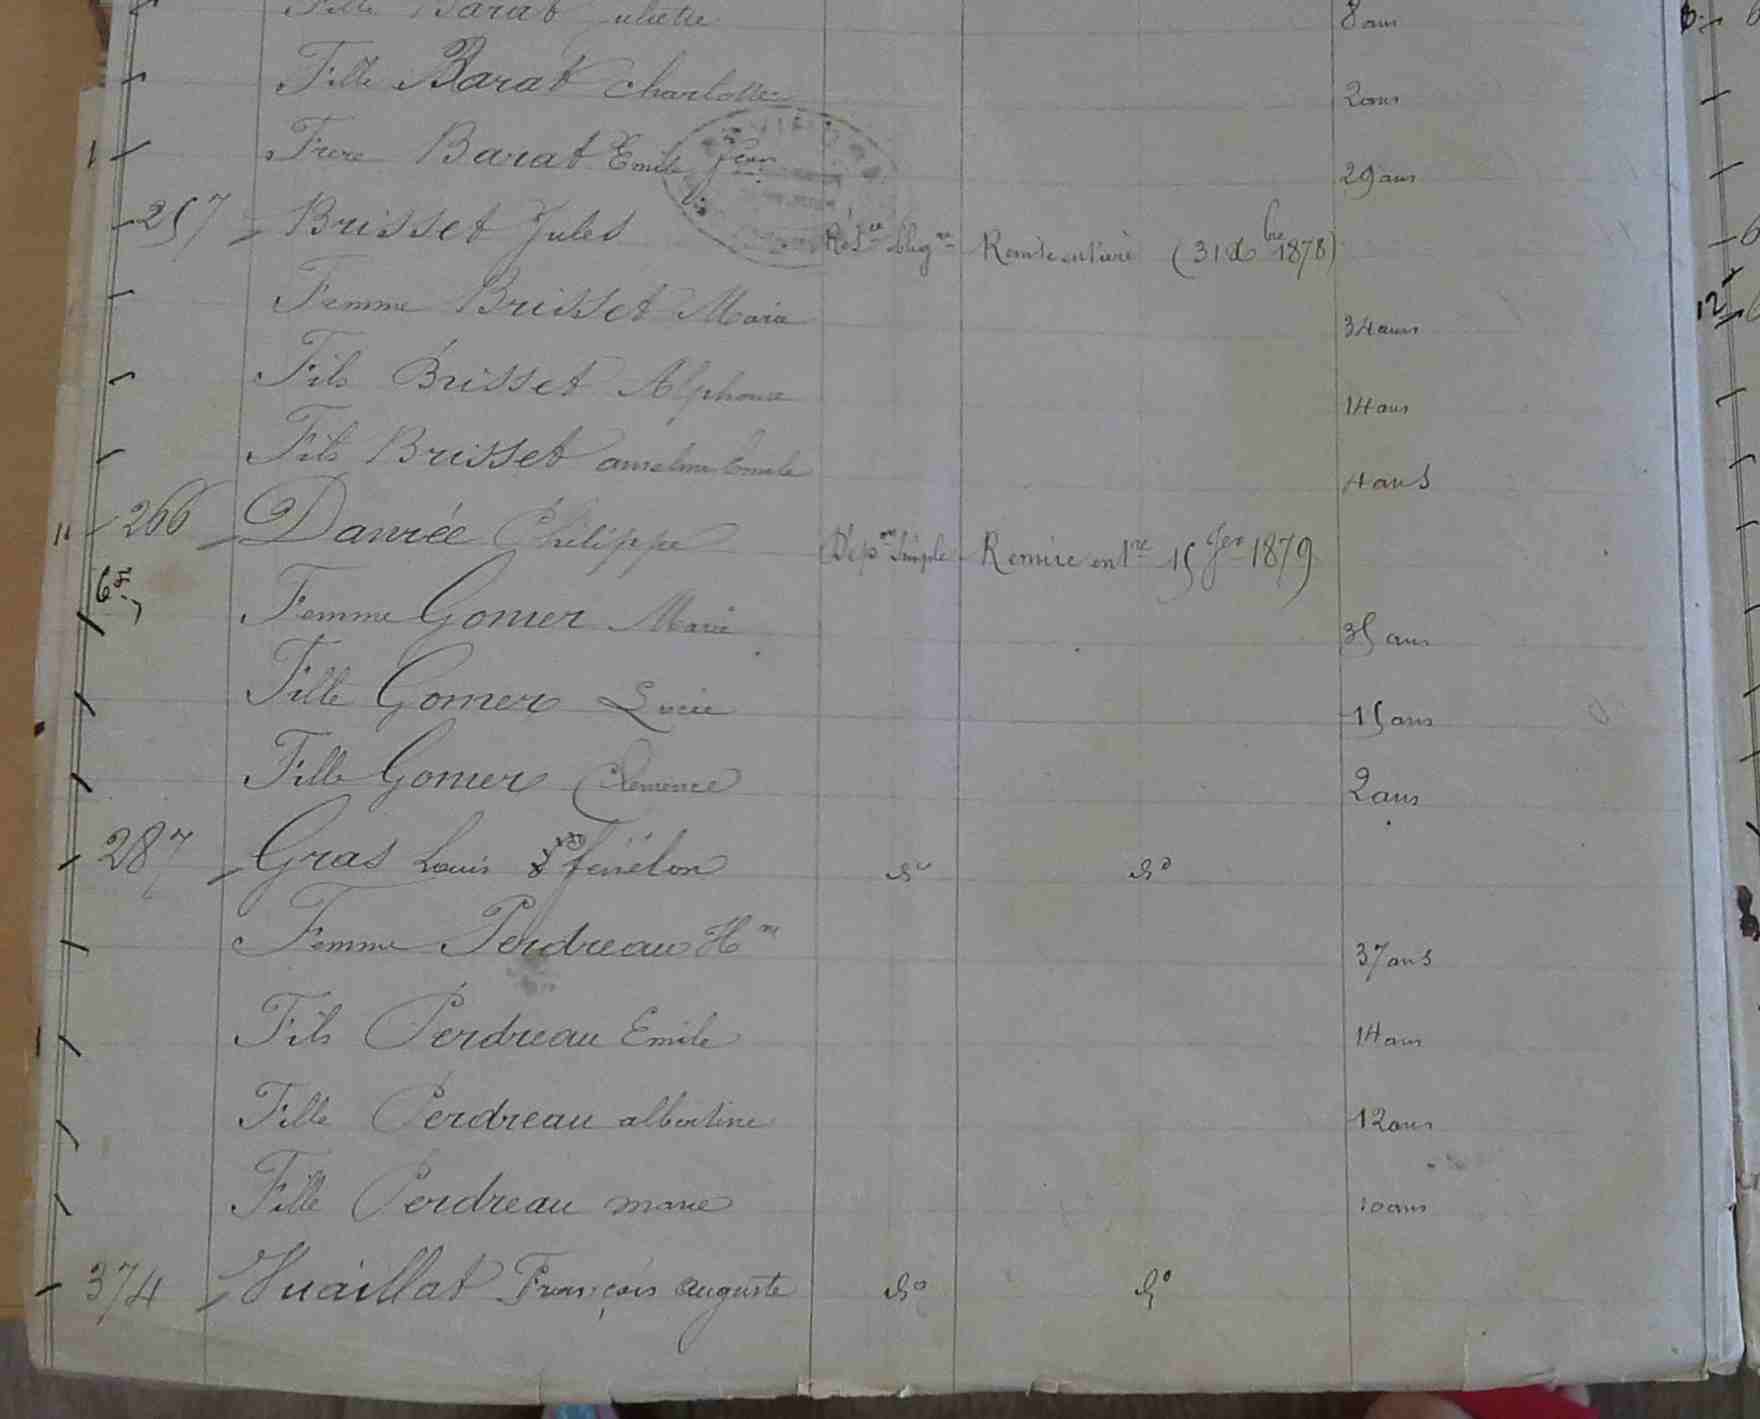 Fille Barat Juliette 8 ans
Fille Barat Charlotte 2 ans
Frere Barat Emile Jean 29 ans
257 Brisset Jules Rel.on obligre Remise entière (31 Xbre 1878)
Femme Brisset Marie 34 ans
Fils Brisset Alphonse 14 ans
Fils Brisset anselme Emile 4 ans
11 266 Danrée Philippe Dép.on Simple Remise entre 15 Jer 1879
Femme Gomer Marie 35 ans
Fille Gomer Lucie 15 ans
Fille Gomer Clemence 2 ans
287 Gras Louis fénélon do do
Femme Perdreau H 37 ans
Fils Perdreau Emile 14 ans
Fille Perdreau albertine 12 ans
Fille Perdreau marie 10 ans
374 Vuaillat François auguste do do
12